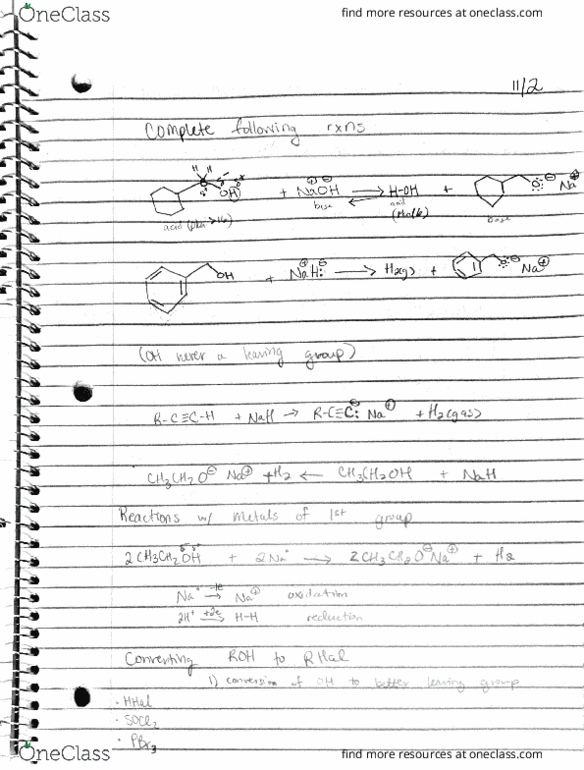 OneClass
find more resources at oneclass.com
11/2
Complete following rxns
H H
OH + NaOH ⇌ H-OH + O:⊖ Na⊕
base acid base
OH + NaH: → H2(g) + O:⊖ Na⊕
(OH never a leaving group)
R-C≡C-H + NaH → R-C≡C:⊖ Na⊕ + H2(gas)
CH3CH2O⊖ Na⊕ + H2 ← CH3CH2OH + NaH
Reactions w/ metals of 1st group
2 CH3CH2OH + 2Na· → 2 CH3CH2O⊖ Na⊕ + H2
Na· -1e→ Na⊕ oxidation
2H⁺ +2e→ H-H reduction
Converting ROH to RHal
1) conversion of OH to better leaving group
· HHal
· SOCl2
· PBr3
OneClass
find more resources at oneclass.com